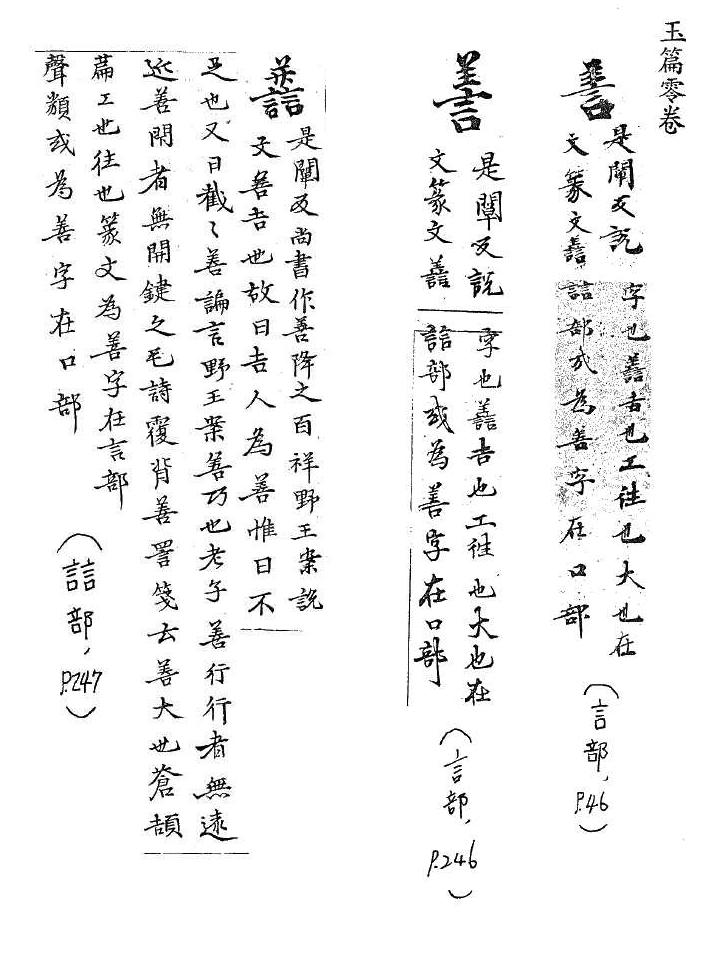 玉篇零卷
譱
是闡反說
字也譱吉也工徃也大也在
文篆文譱
誩部或為善字在口部
(言部, P.46)
譱
是闡反說
字也譱吉也工徃也大也在
文篆文譱
誩部或為善字在口部
(言部, P.246)
譱
是闡反尚書作善降之百祥野王案說
文善吉也故曰吉人為善惟日不
足也又曰截〻善諞言野王案善巧也老子善行行者無遠
近善閇者無開鍵之毛詩覆背善詈箋云善大也蒼頡
篇工也往也篆文為善字在言部
聲類或為善字在口部
(誩部, P.247)